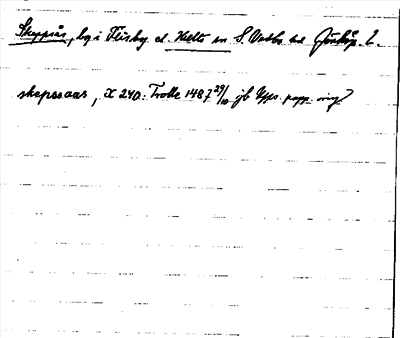 Skeppsås, by i Flisby el. Hults sn S. Vedbo hd Jönköp. l.
skepssaas, X 240: Trolle 1487 29/10 jb Upps. papp. orig